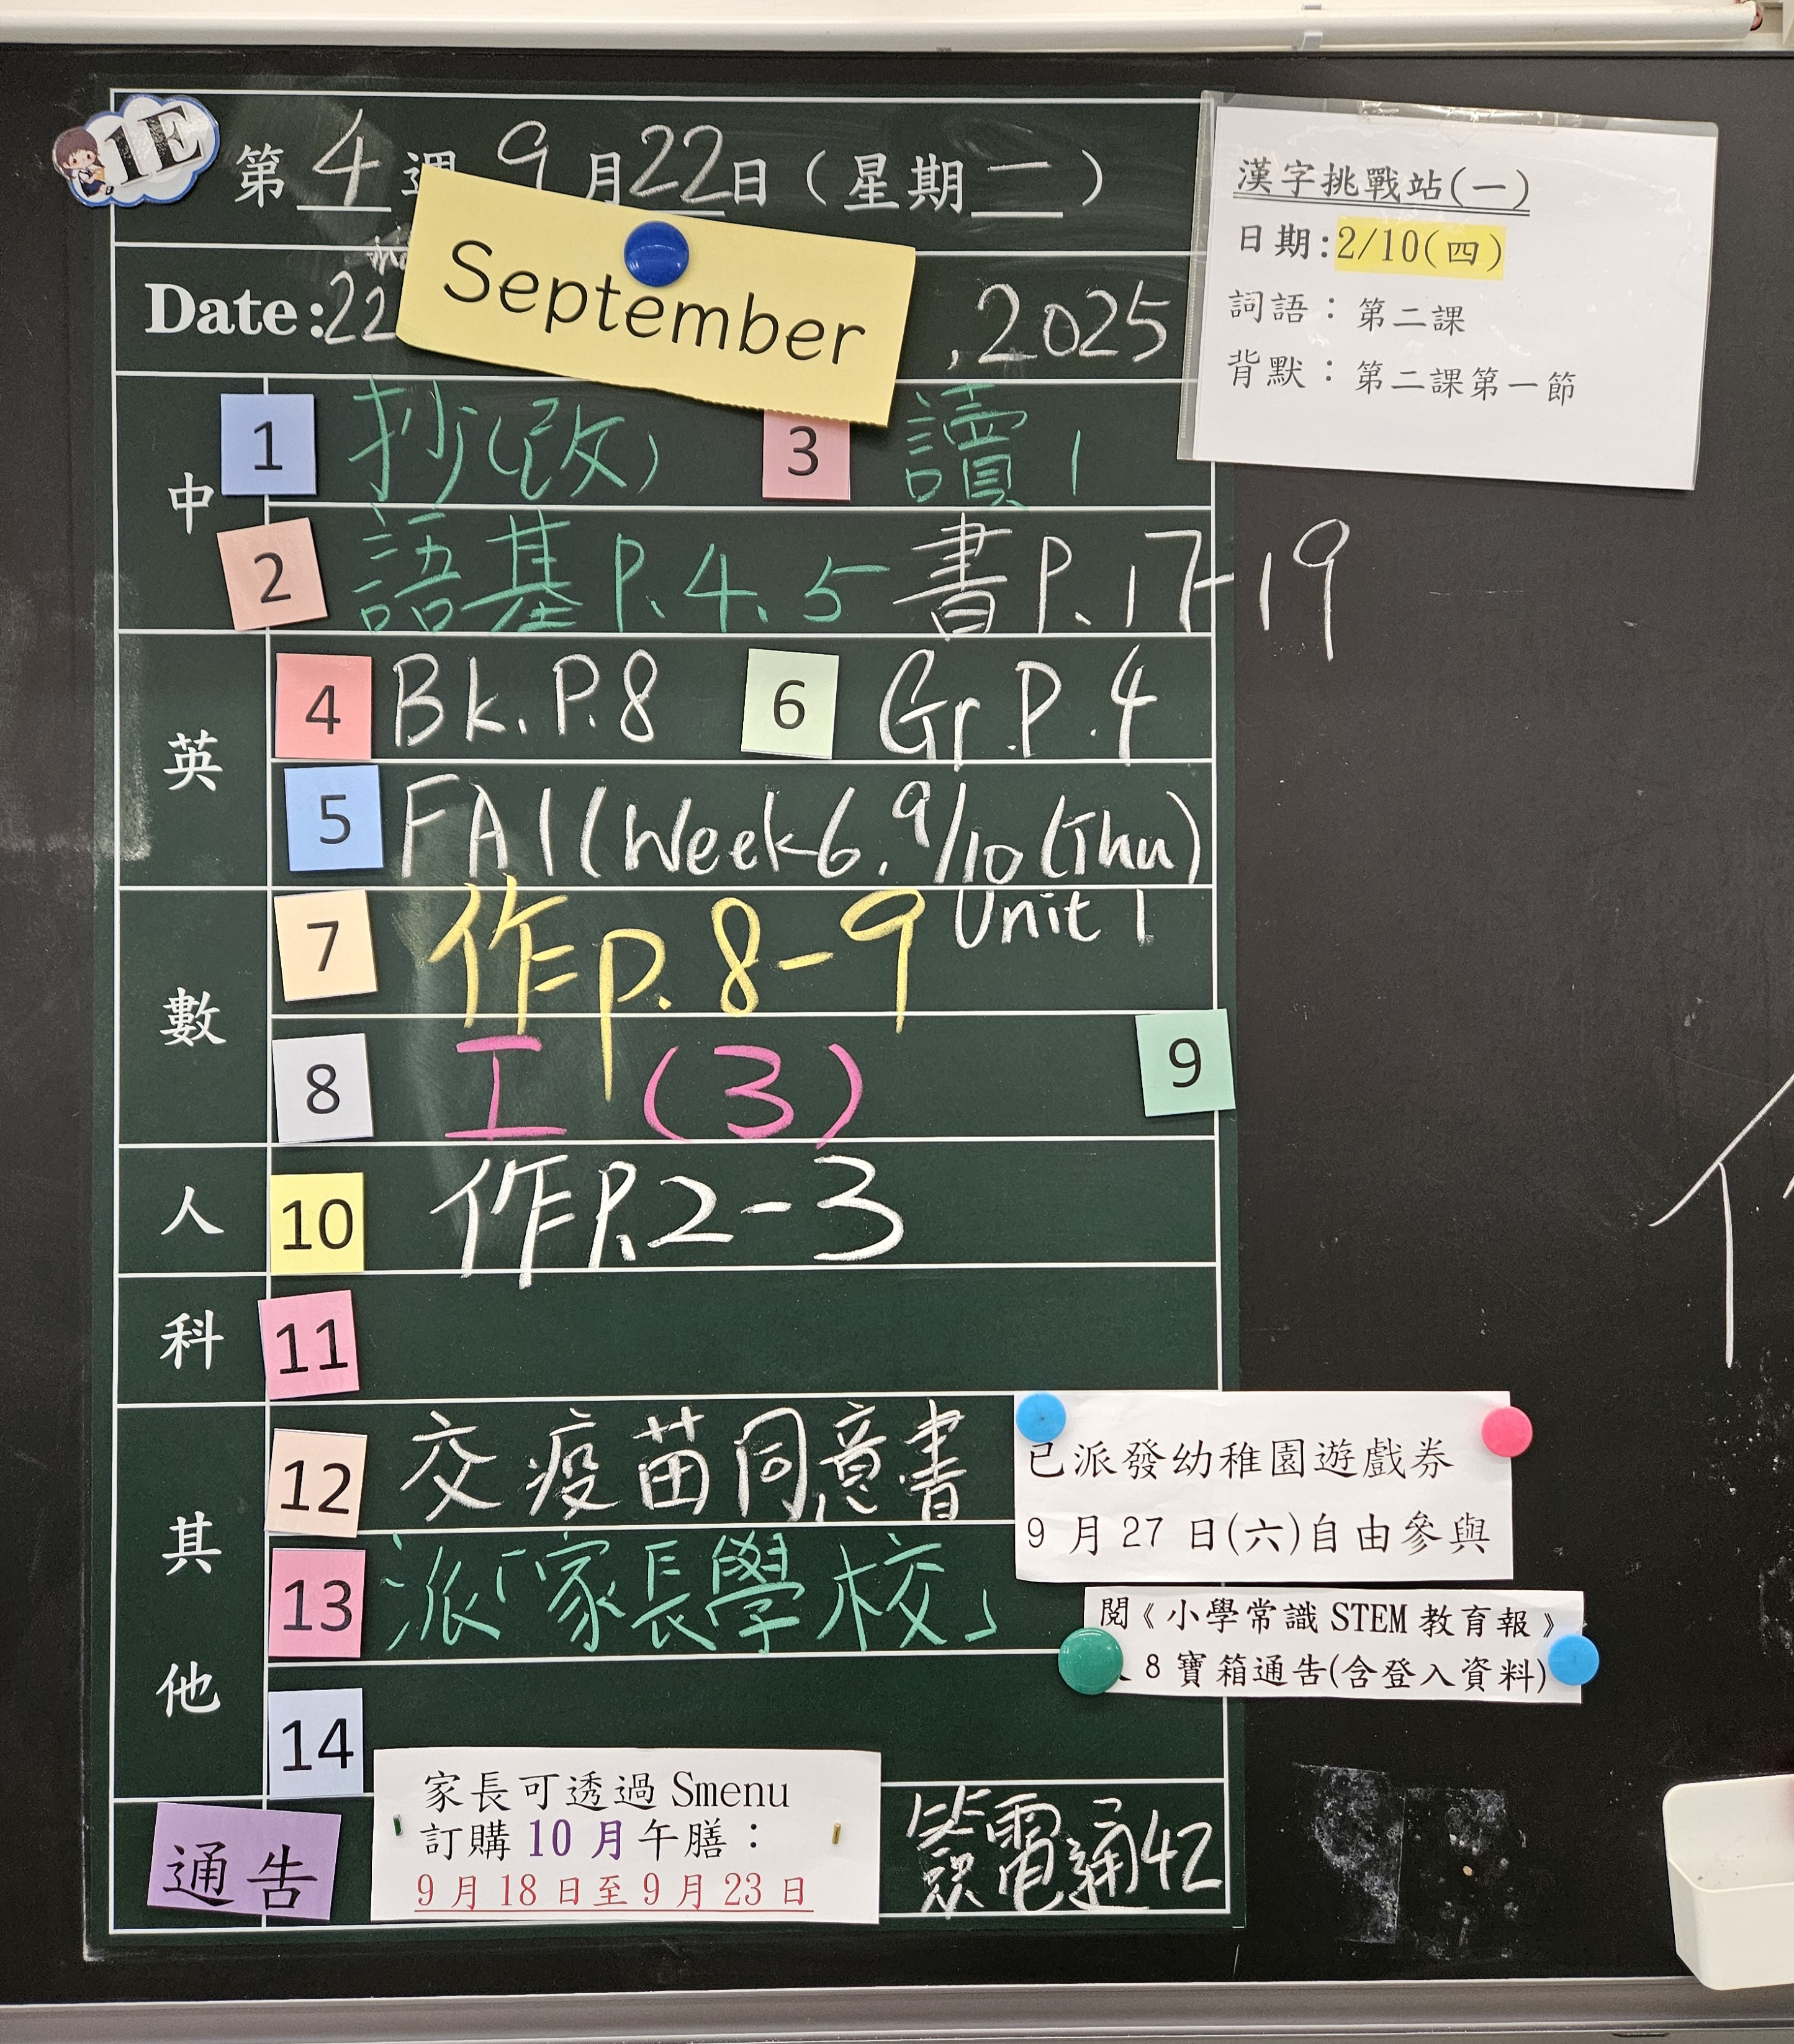 1E
第 4 週 9 月 22 日 ( 星 期 二 )
Date: 22 September , 2025
漢字挑戰站(一)
日期:2/10(四)
詞語：第二課
背默：第二課第一節
中
1 抄(改) 3 讀1
2 語基P.4、5 書P.17-19
英
4 Bk.P.8 6 Gr.P.4
5 FA1(Week6.9/10(Thu)
Unit 1
數
7 作p.8-9
8 工 (3) 9
人
10 作P.2-3
科
11
其他
12 交疫苗同意書
13 派「家長學校」
14
已派發幼稚園遊戲券
9 月 27 日(六)自由參與
閱《小學常識 STEM 教育報》
8 寶箱通告(含登入資料)
通告
家長可透過 Smenu
訂購 10 月午膳：
9 月 18 日至 9 月 23 日
電通42